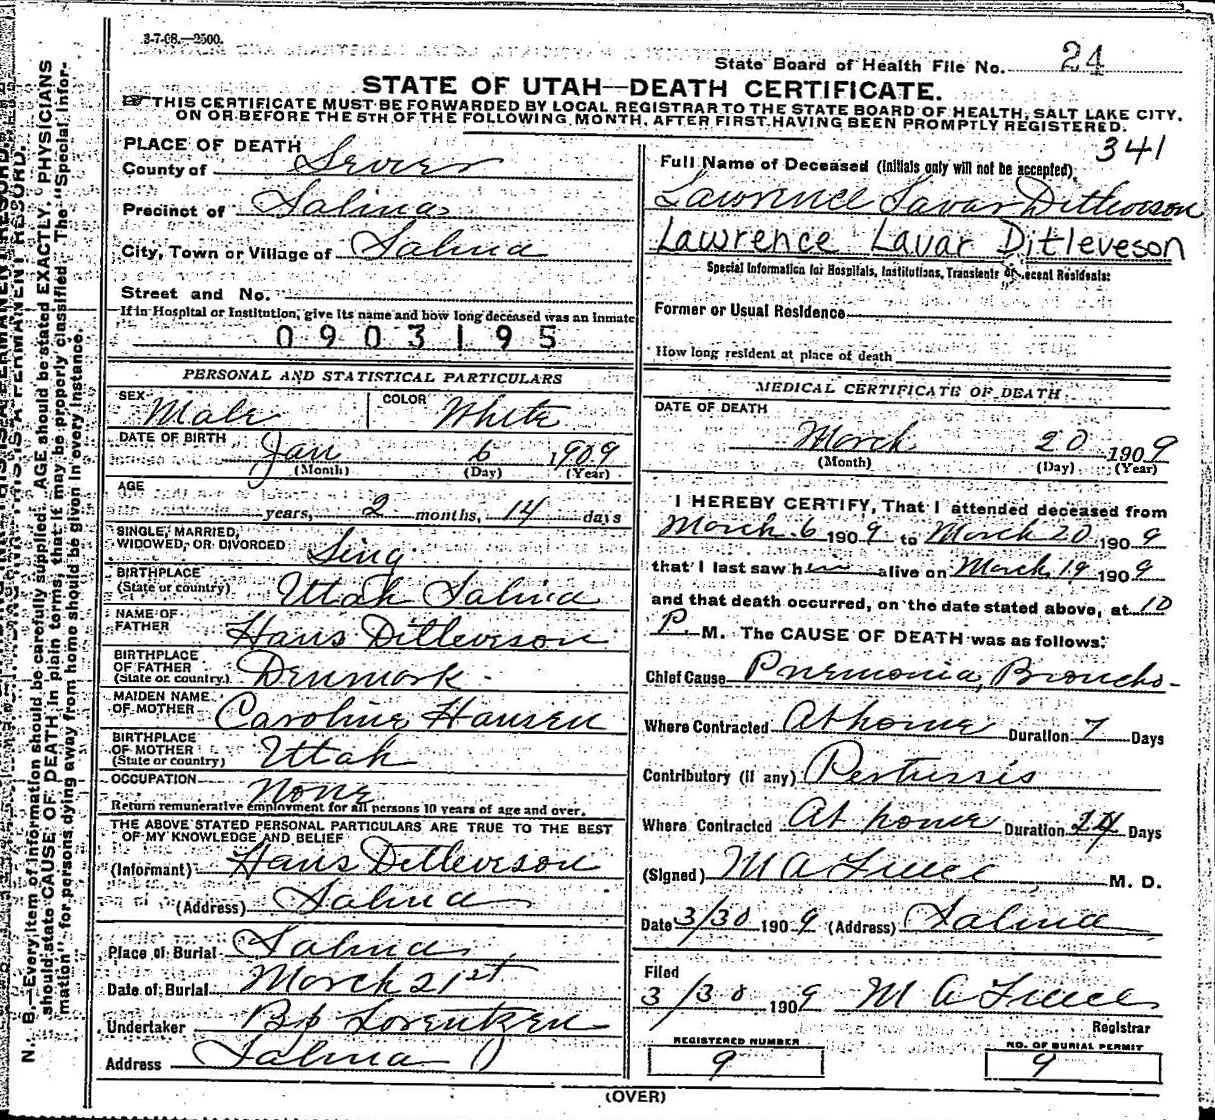 3-7-08.—2500.
State Board of Health File No. 24
STATE OF UTAH—DEATH CERTIFICATE.
THIS CERTIFICATE MUST BE FORWARDED BY LOCAL REGISTRAR TO THE STATE BOARD OF HEALTH, SALT LAKE CITY,
ON OR BEFORE THE 5TH OF THE FOLLOWING MONTH, AFTER FIRST HAVING BEEN PROMPTLY REGISTERED.
341
PLACE OF DEATH
County of Sevier
Precinct of Salina
City, Town or Village of Salina
Street and No.
If in Hospital or Institution, give its name and how long deceased was an inmate
0903195
Full Name of Deceased (Initials only will not be accepted)
Lawrence Lavar Ditleveson
Lawrence Lavar Ditleveson
Special Information for Hospitals, Institutions, Transients or Recent Residents:
Former or Usual Residence
How long resident at place of death
PERSONAL AND STATISTICAL PARTICULARS
SEX Male COLOR White
DATE OF BIRTH Jan 6 1909
(Month) (Day) (Year)
AGE
years, 2 months, 14 days
SINGLE, MARRIED,
WIDOWED, OR DIVORCED Sing.
BIRTHPLACE
(State or country) Uttah Salina
NAME OF
FATHER Hans Ditleveson
BIRTHPLACE
OF FATHER
(State or country.) Denmark.
MAIDEN NAME
OF MOTHER Caroline Hansen
BIRTHPLACE
OF MOTHER
(State or country) Uttah
OCCUPATION None
Return remunerative employment for all persons 10 years of age and over.
THE ABOVE STATED PERSONAL PARTICULARS ARE TRUE TO THE BEST
OF MY KNOWLEDGE AND BELIEF
(Informant) Hans Ditleveson
(Address) Salina
Place of Burial Salina
Date of Burial March 21st
Undertaker Bp Lorentzen
Address Salina
MEDICAL CERTIFICATE OF DEATH
DATE OF DEATH
March 20 1909
(Month) (Day) (Year)
I HEREBY CERTIFY, That I attended deceased from
March 6 1909 to March 20 1909
that I last saw him alive on March 19 1909
and that death occurred, on the date stated above, at 10
P. M. The CAUSE OF DEATH was as follows:
Chief Cause Pnemonia, Broncho-
Where Contracted At home Duration 7 Days
Contributory (if any) Pertussis
Where Contracted At home Duration 14 Days
(Signed) M A M. D.
Date 3/30 1909 (Address) Salina
Filed
3/30 1909 M A
Registrar
REGISTERED NUMBER
9
NO. OF BURIAL PERMIT
9
(OVER)
N. B.—Every item of information should be carefully supplied. AGE should be stated EXACTLY. PHYSICIANS
should state CAUSE OF DEATH in plain terms, that it may be properly classified. The "Special Infor-
mation" for persons dying away from home should be given in every instance.